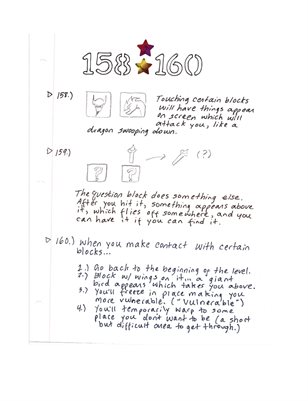 158 160
▷ 158.) Touching certain blocks
will have things appear
on screen which will
attack you, like a
dragon swooping down.
▷ 159.) (?)
? ?
The question block does something else.
After you hit it, something appears above
it, which flies off somewhere, and you
can have it if you can find it.
▷ 160.) When you make contact with certain
blocks...
1.) Go back to the beginning of the level.
2.) Block w/ wings on it... a giant
bird appears which takes you above.
3.) You'll freeze in place making you
more vulnerable. ("Vulnerable")
4.) You'll temporarily warp to some
place you don't want to be (a short
but difficult area to get through.)